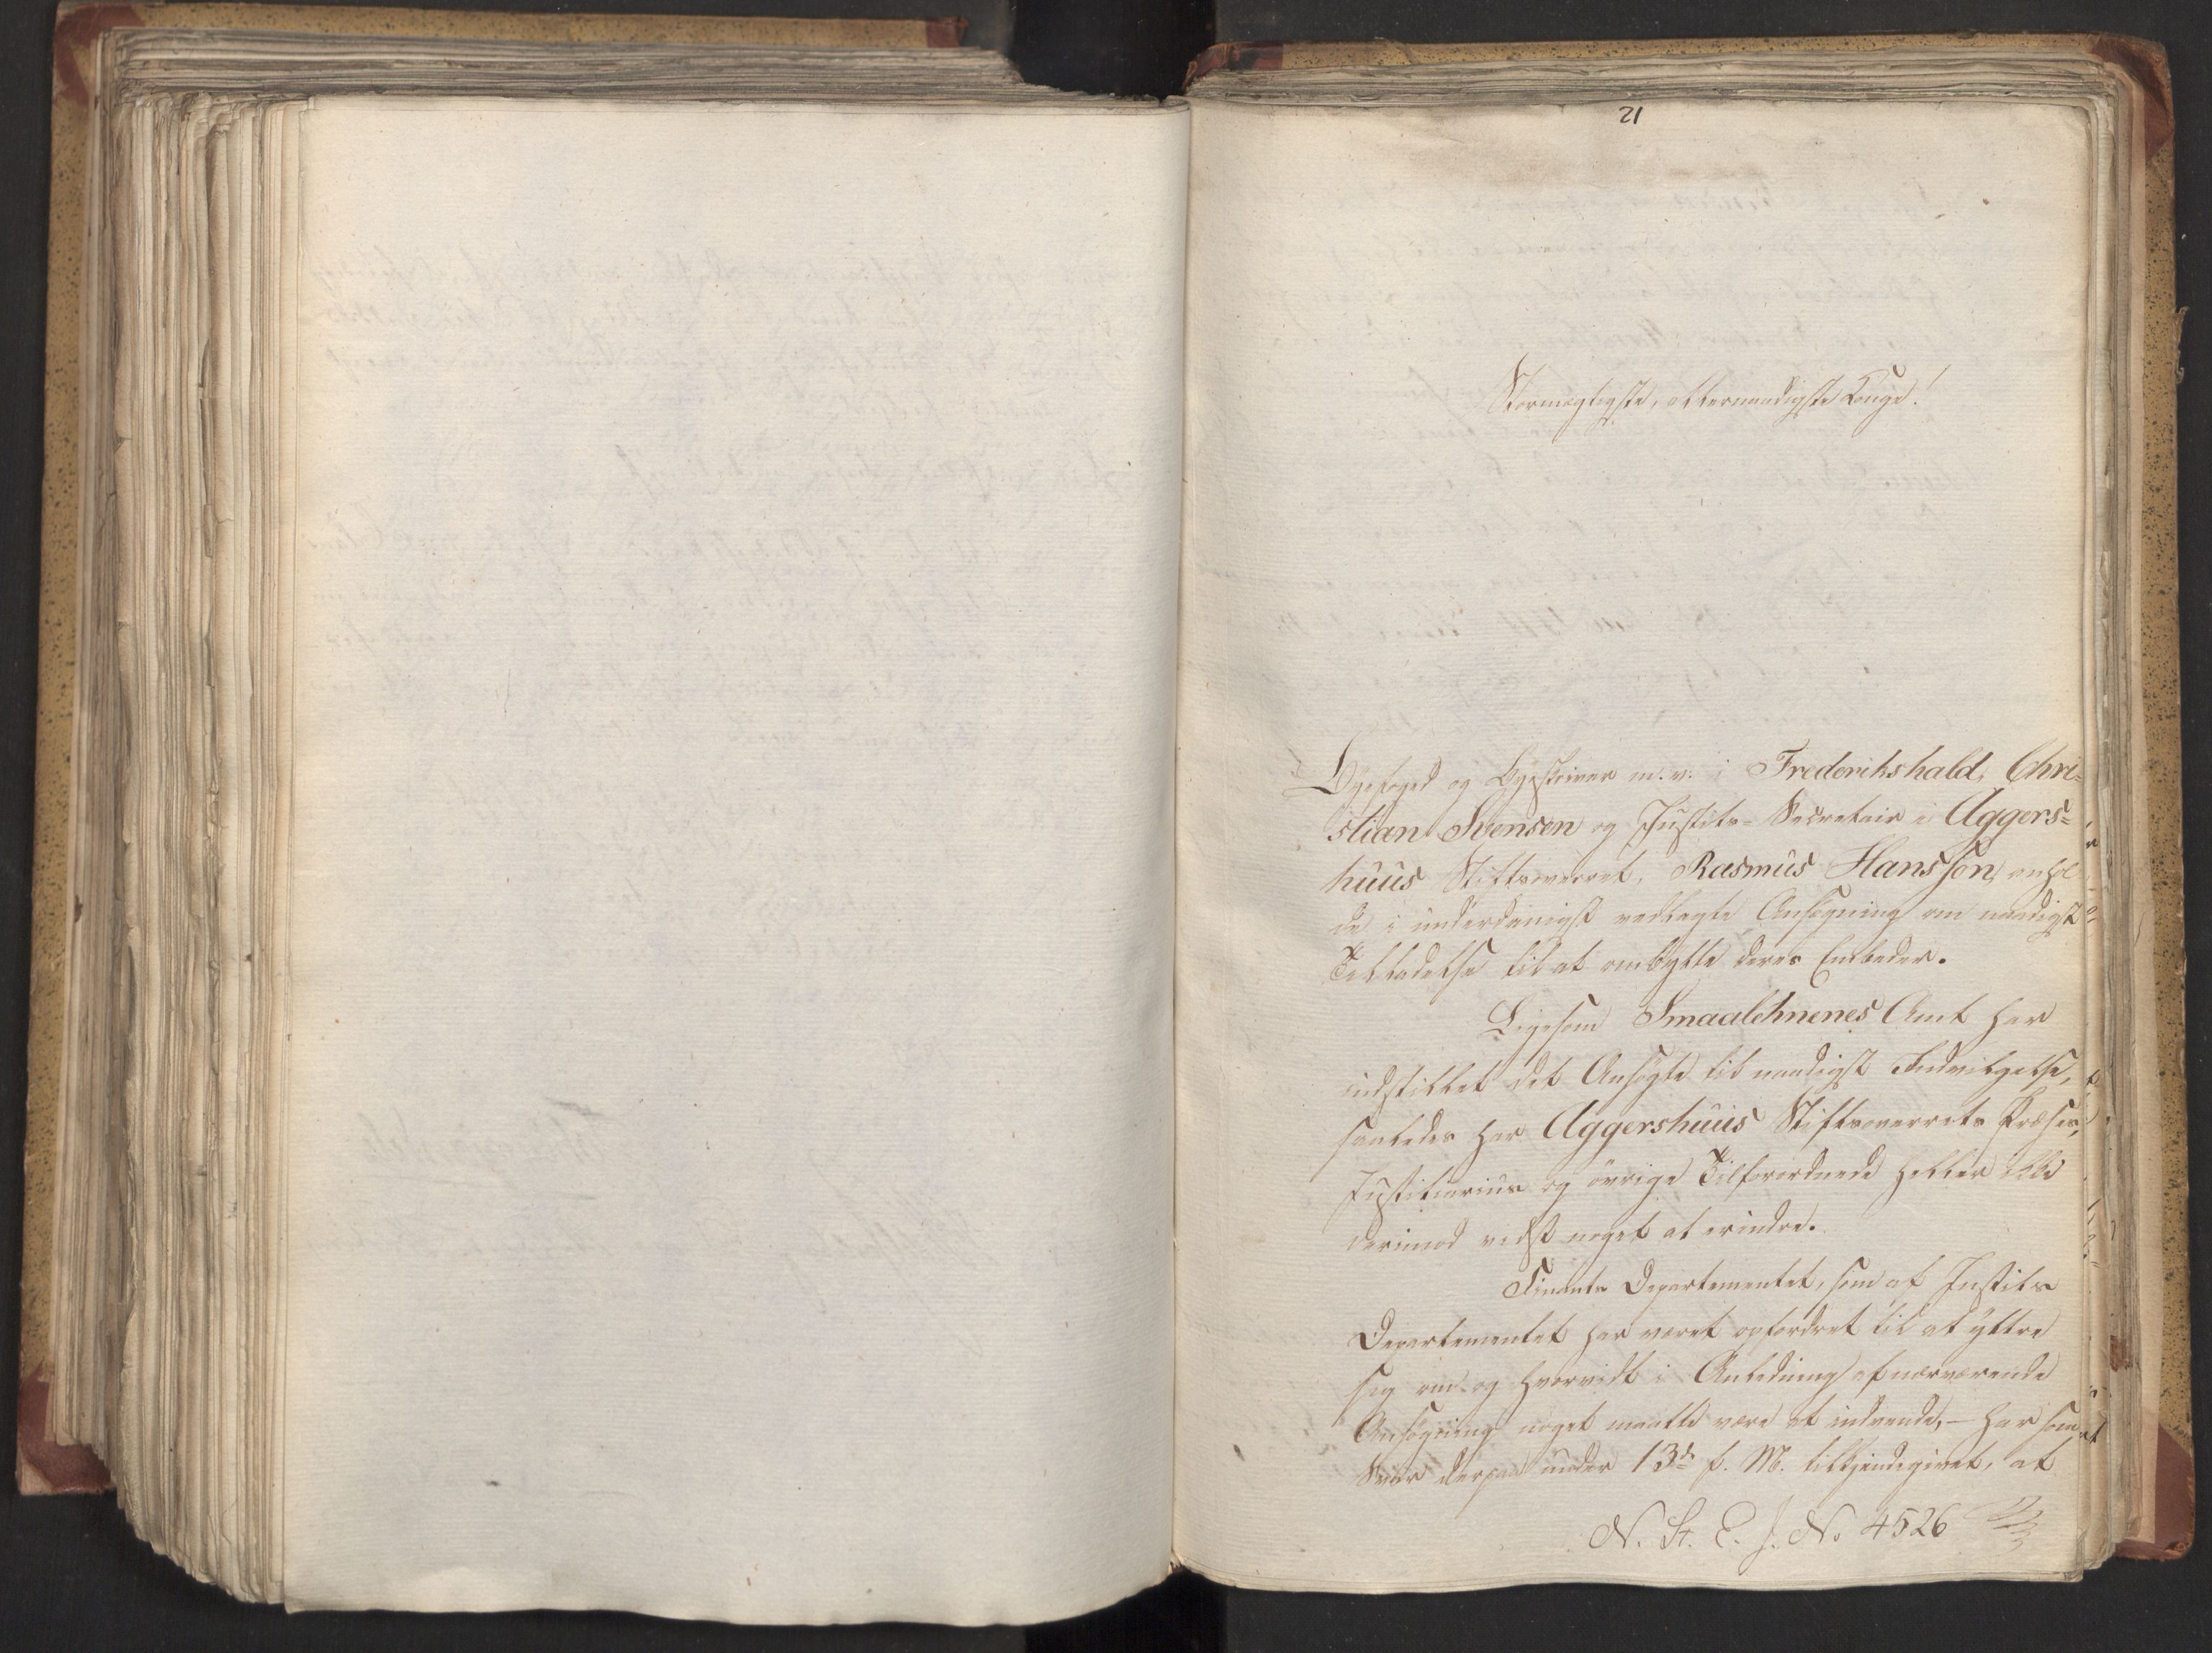 21
Stormægtigste, allernaadigste Konge!
Byefoged og Byeskriver m.v. i Frederikshald, Chri-
stian Svensen og Justits-Secretair i Aggers-
huus Stiftsoverret, Rasmus Hansson, anhol-
de i underdanigst vedlagte Ansøgning om naadigst
Tilladelse til at ombytte deres Embeder.
Ligesom Smaalehnenes Amt har
indstillet det Ansøgte til naadigst Indvilgelse,
saaledes har Aggershuus Stiftsoverrets Præses,
Justitiarius og øvrige Tilforordnede heller ikke
derimod vidst noget at erindre.
Finants Departementet, som af Justits
Departementet har været opfordret til at yttre
sig om og hvorvidt i Anledning af nærværende
Ansøgning noget maatte være at indvende, - har som
Svar derpaa under 13de f. M. tilkjendegivet, at
N. St. E. J. No 4526